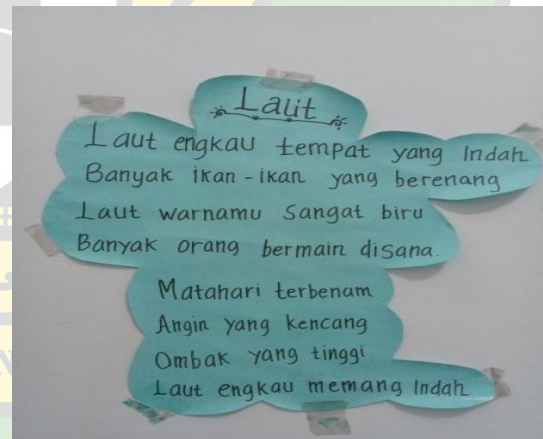 Laut
Laut engkau tempat yang Indah
Banyak ikan-ikan yang berenang
Laut warnamu sangat biru
Banyak orang bermain disana.
Matahari terbenam
Angin yang kencang
Ombak yang tinggi
Laut engkau memang Indah